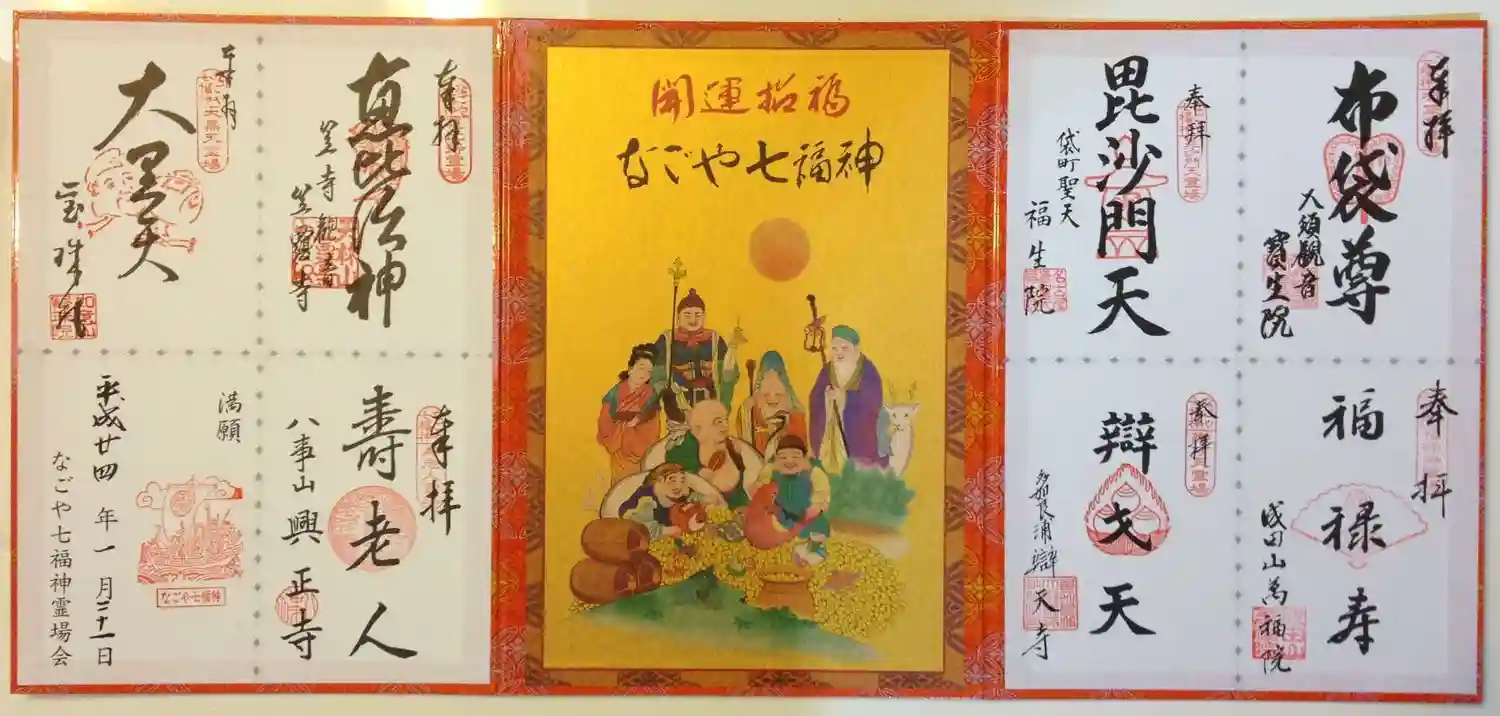 奉拝
布袋尊
大須観音
寳生院
奉拝
毘沙門天
袋町聖天
福生院
奉拝
福禄寿
成田山萬福院
奉拝
辯才天
辯天寺
開運招福
なごや七福神
奉拝
恵比須神
笠寺観音
笠覆寺
大黒天
宝珠院
奉拝
寿老人
八事山興正寺
満願
なごや七福神
平成廿四年一月二十一日
なごや七福神霊場会